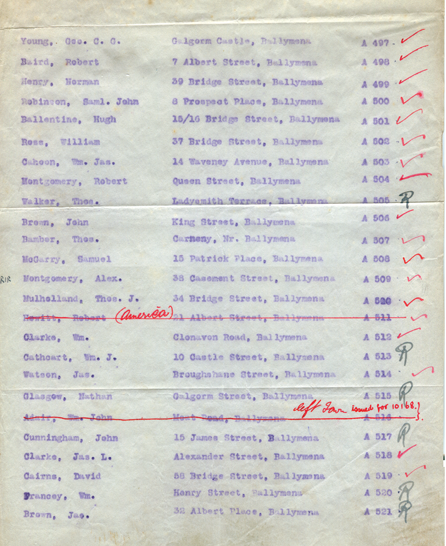 Young, Geo. C. G. Galgorm Castle, Ballymena A 497.
Baird, Robert 7 Albert Street, Ballymena A 498
Henry, Norman 39 Bridge Street, Ballymena A 499
Robinson, Saml. John 6 Prospect Place, Ballymena A 500
Ballentine, Hugh 15/16 Bridge Street, Ballymena A 501
Ross, William 37 Bridge Street, Ballymena A 502
Cahoon, Wm. Jas. 14 Waveney Avenue, Ballymena A 503
Montgomery, Robert Queen Street, Ballymena A 504
Walker, Thos. Ladysmith Terrace, Ballymena A 505
Brown, John King Street, Ballymena A 506
Bamber, Thos. Carneny, Nr. Ballymena A 507
McGarry, Samuel 15 Patrick Place, Ballymena A 508
RIR Montgomery, Alex. 38 Casement Street, Ballymena A 509
Mulholland, Thos. J. 34 Bridge Street, Ballymena A
Hewitt, Robert (America) 21 Albert Street, Ballymena A 511
Clarke, Wm. Clonavon Road, Ballymena A 512
Cathcart, Wm. J. 10 Castle Street, Ballymena A 513
Watson, Jas. Broughshane Street, Ballymena A 514
Glasgow, Nathan Galgorm Street, Ballymena A 515
left Town issued for 10168.)
Adair, Wm. John Moat Road, Ballymena A 516
Cunningham, John 15 James Street, Ballymena A 517
Clarke, Jas. L. Alexander Street, Ballymena A 518
Cairns, David 58 Bridge Street, Ballymena A 519
Francey, Wm. Henry Street, Ballymena A 520
Brown, Jas. 32 Albert Place, Ballymena A 521